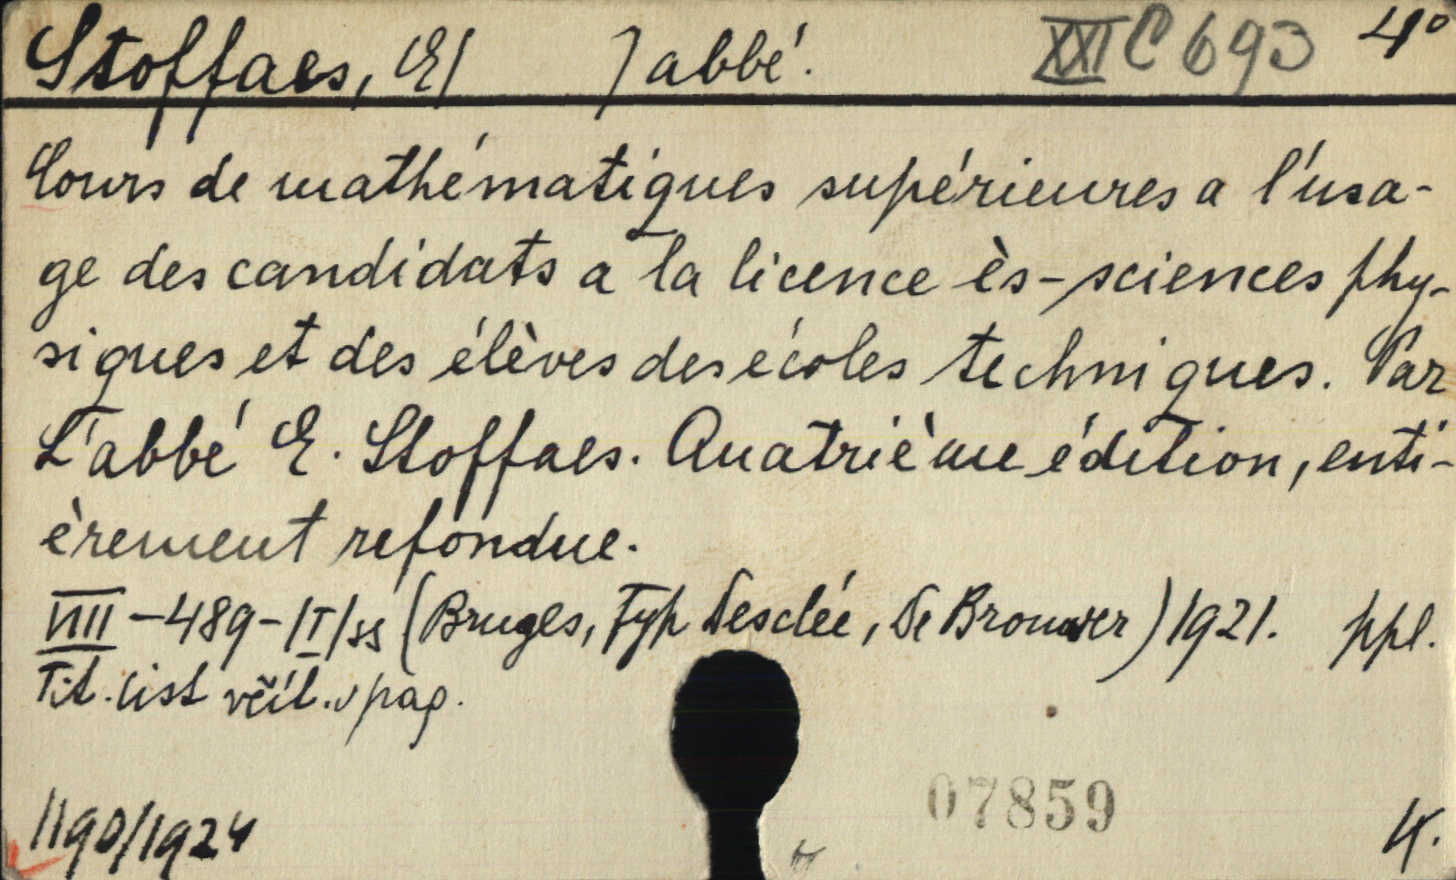 Stoffaes, E/ ] abbé. XXI C 693 4°
Cours de mathématiques supérieures a l'usa-
ge des candidats a la licence ès-sciences phy-
siques et des élèves des écoles techniques. Par
L'abbé E. Stoffaes. Quatrième édition, enti-
èrement refondue.
VIII-489-/I/ss (Bruges, Typ Desclée, De Brouwer) 1921. ppl.
Tit. list včít. v pag.
07859
1190/1924 K.